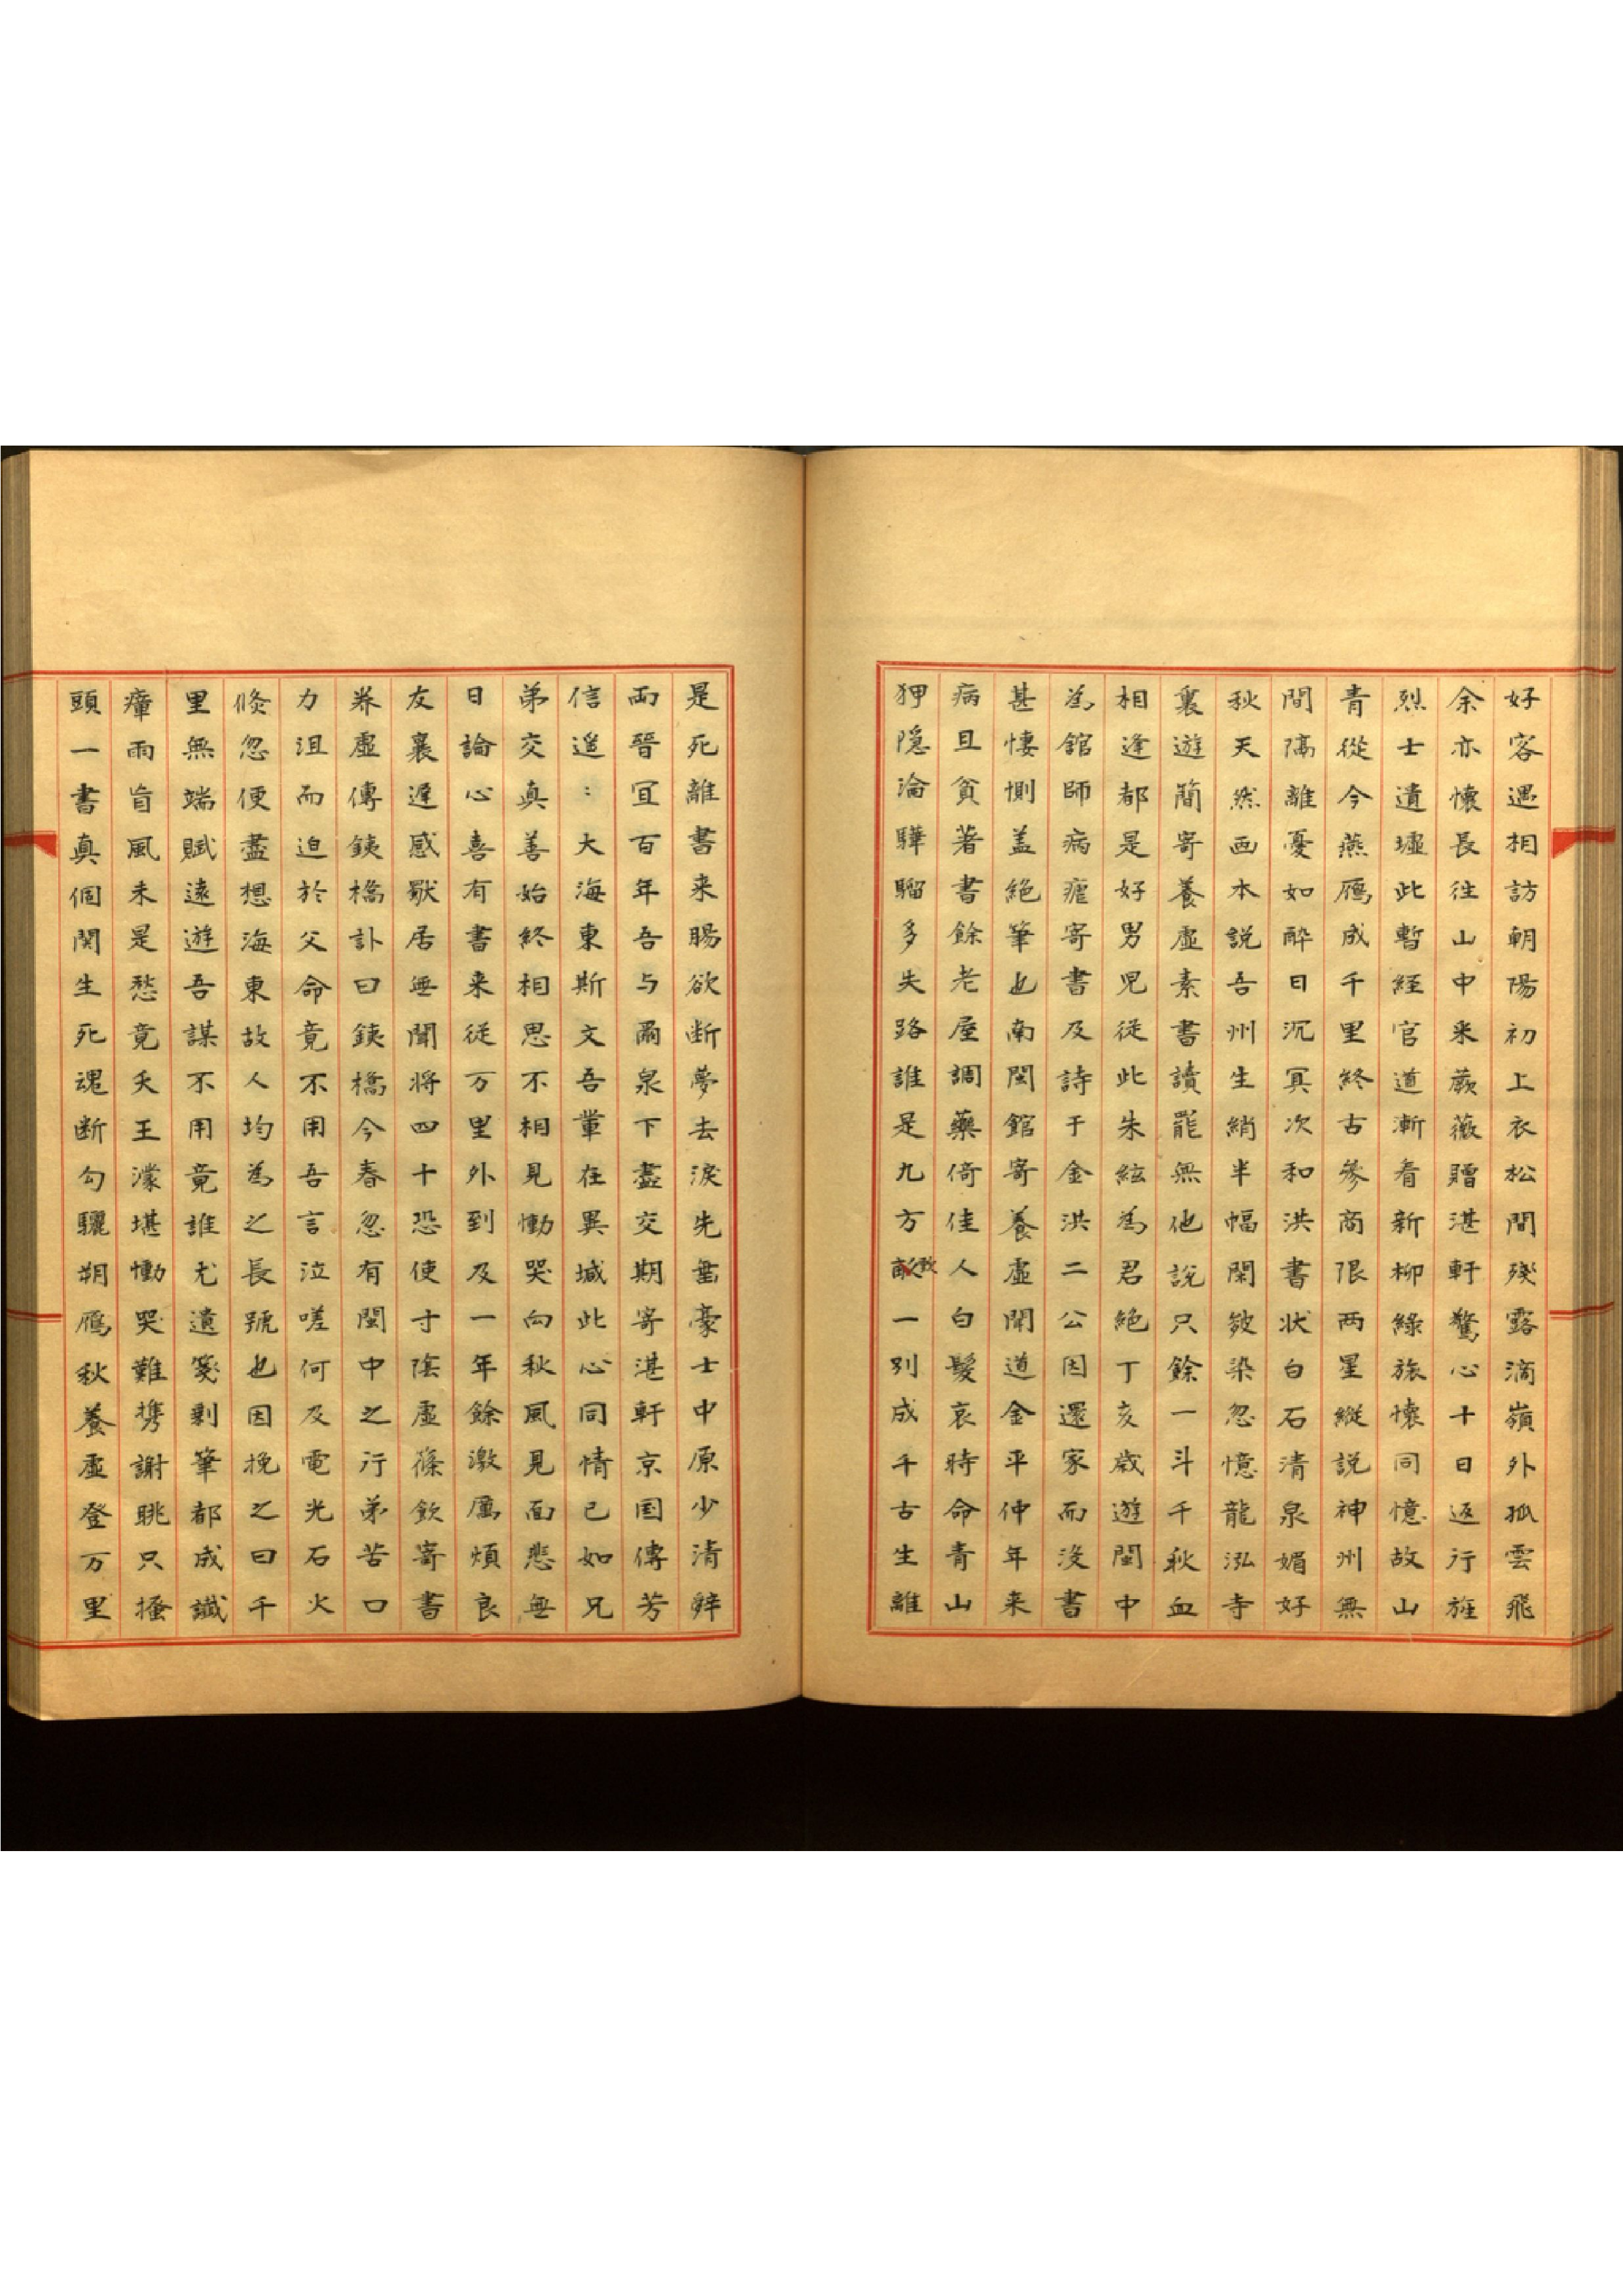 好客遇相訪朝陽初上衣松間殘露滴嶺外孤雲飛
余亦懷長往山中来蕨薇贈湛軒驚心十日返行旌
烈士遺墟此暫經官道漸看新柳綠旅懷同憶故山
青從今燕鴈成千里終古參商限兩星縱説神州無
間隔離憂如醉日沉冥次和洪書状白石清泉媚好
秋天然画本説吾州生綃半幅閑皴染忽憶龍泓寺
裏遊簡寄養虛素書讀罷無他説只餘一斗千秋血
相逢都是好男児從此朱絃為君絕丁亥歳遊閩中
為館師病瘧寄書及詩于金洪二公因還家而没書
甚悽惻盖絕筆也南閩館寄養虛聞道金平仲年来
病且貧著書餘老屋調藥倚佳人白髮哀時命青山
狎隠淪驊騮多失路誰是九方歅一别成千古生離
是死離書来腸欲断夢去淚先垂豪士中原少清辭
兩晉宜百年吾与爾泉下盡交期寄湛軒京国傳芳
信遥：大海東斯文吾輩在異域此心同情已如兄
弟交真善始終相思不相見慟哭向秋風見面悲無
日論心喜有書来従万里外到及一年餘激厲煩良
友衰遲感歌居無聞将四十恐使寸陰虛篠飲寄書
养虛傳鐵橋訃曰鐵橋今春忽有閩中之行弟苦口
力沮而迫於父命竟不用吾言泣嗟何及電光石火
倏忽便盡想海東故人均為之長號也因挽之曰千
里無端賦遠遊吾謀不用竟誰尤遺箋剩筆都成讖
瘴雨盲風未是愁竟夭王濛堪慟哭難携謝朓只搔
頭一書真個関生死魂断勾驪朔鴈秋養虛登万里